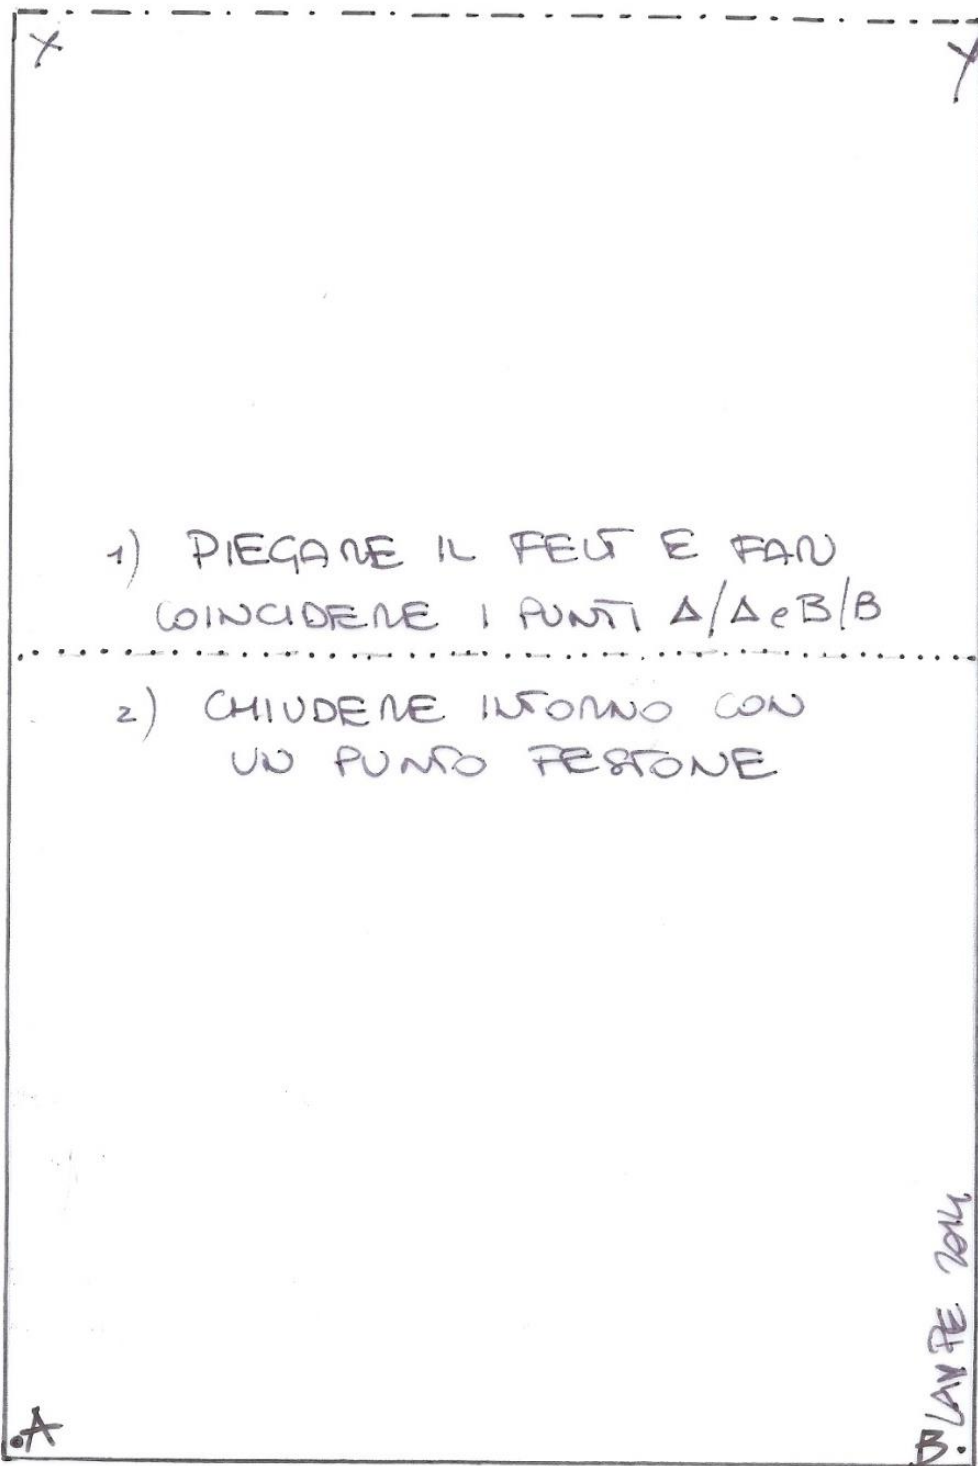 X Y
1) PIEGARE IL FELT E FAR
COINCIDERE I PUNTI A/A e B/B
2) CHIUDERE INTORNO CON
UN PUNTO FESTONE
.A
B.
LAMPE 2014